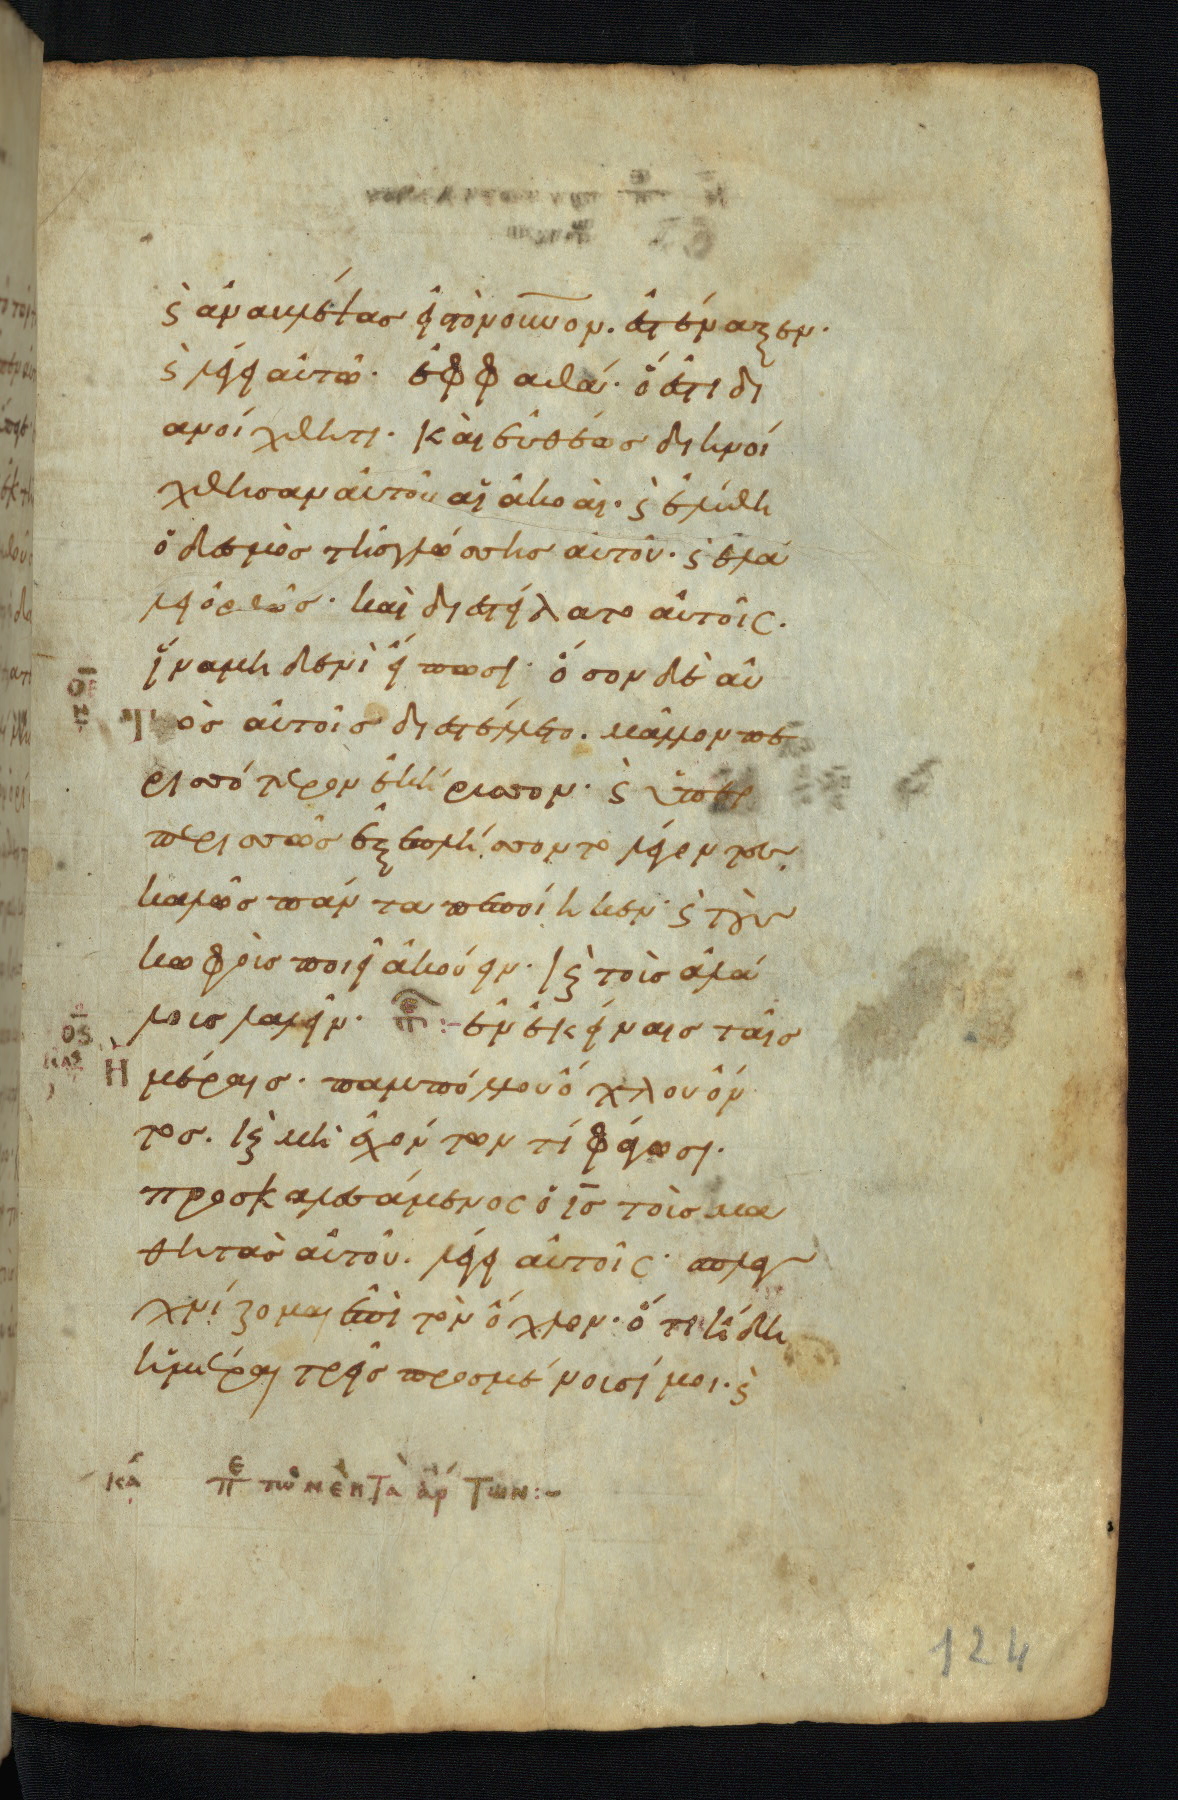 ϛ ἀναβλέψας εἰς τὸν οὐνον. ἐστέναξεν.
ϛ λέγει αὐτῶ. ἐφφαθά. ὅ ἐστι δι
ανοίχθητι. καὶ εὐθέως διηνοί
χθησαν αὐτοῦ αἱ ἀκοαί. ϛ ἐλύθη
ὁ δεσμὸς τῆς γλώσσης αὐτοῦ. ϛ ἐλά
λει ὀρθῶς. καὶ διεστείλατο αὐτοῖς.
ἵνα μηδενὶ εἴπωσι. ὅσον δὲ αὐ
τὸς αὐτοῖς διεστέλλετο. μᾶλλον πε
ρισσότερον ἐκήρυσσον. ϛ ὑπερ
περισσῶς ἐξεπλήσσοντο λέγοντες.
καλῶς πάντα πεποίηκεν. ϛ τοὺς
κωφοὺς ποιεῖ ἀκούειν. κϛ τοὺς ἀλά
λους λαλεῖν. ἐν ἐκείναις ταῖς
Ἡμέραις. παμπόλλου ὄχλου ὄν
τος. κϛ μὴ ἐχόντων τί φάγωσι.
προσκαλεσάμενος ὁ ις τοὺς μα
θητὰς αὐτοῦ. λέγει αὐτοῖς. σπλαγ
χνίζομαι ἐπὶ τὸν ὄχλον. ὅτι ἤδη
ἡμέραι τρεῖς προσμένουσί μοι. ϛ
κΔ πε τῶν ἑπτὰ ἄρτων:-
οε
ος
124